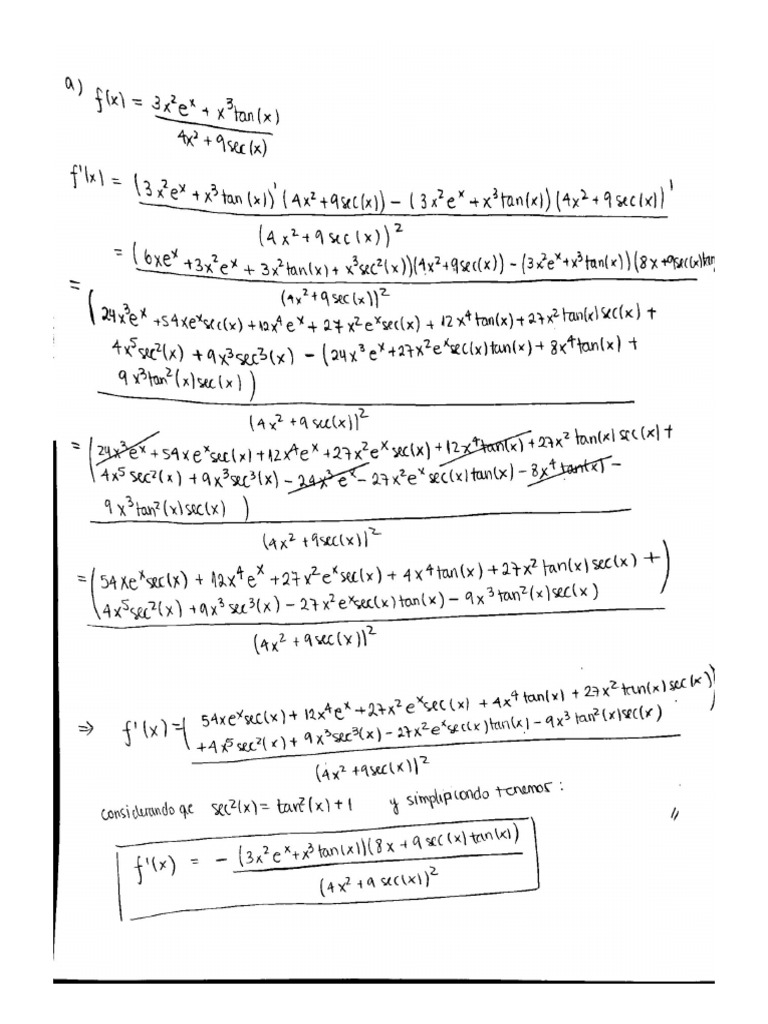 a) f(x) = 3x²eˣ + x³tan(x)
4x² + 9sec(x)
f'(x) = (3x²eˣ + x³tan(x))' (4x² + 9sec(x)) − (3x²eˣ + x³tan(x)) (4x² + 9sec(x))'
(4x² + 9sec(x))²
= (6xeˣ + 3x²eˣ + 3x²tan(x) + x³sec²(x))(4x² + 9sec(x)) − (3x²eˣ + x³tan(x))(8x + 9sec(x)tan
(4x² + 9sec(x))²
= (24x³eˣ + 54xeˣsec(x) + 12x⁴eˣ + 27x²eˣsec(x) + 12x⁴tan(x) + 27x²tan(x)sec(x) +
4x⁵sec²(x) + 9x³sec³(x) − (24x³eˣ + 27x²eˣsec(x)tan(x) + 8x⁴tan(x) +
9x³tan²(x)sec(x))
(4x² + 9sec(x))²
= (24x³eˣ + 54xeˣsec(x) + 12x⁴eˣ + 27x²eˣsec(x) + 12x⁴tan(x) + 27x²tan(x)sec(x) +
4x⁵sec²(x) + 9x³sec³(x) − 24x³eˣ − 27x²eˣsec(x)tan(x) − 8x⁴tan(x) −
9x³tan²(x)sec(x) )
(4x² + 9sec(x))²
= (54xeˣsec(x) + 12x⁴eˣ + 27x²eˣsec(x) + 4x⁴tan(x) + 27x²tan(x)sec(x) +
4x⁵sec²(x) + 9x³sec³(x) − 27x²eˣsec(x)tan(x) − 9x³tan²(x)sec(x) )
(4x² + 9sec(x))²
⇒ f'(x) = ( 54xeˣsec(x) + 12x⁴eˣ + 27x²eˣsec(x) + 4x⁴tan(x) + 27x²tan(x)sec(x)
+ 4x⁵sec²(x) + 9x³sec³(x) − 27x²eˣsec(x)tan(x) − 9x³tan²(x)sec(x) )
(4x² + 9sec(x))²
considerando qe sec²(x) = tan²(x) + 1 y simplificando tenemos: //
f'(x) = − (3x²eˣ + x³tan(x))(8x + 9sec(x)tan(x))
(4x² + 9sec(x))²